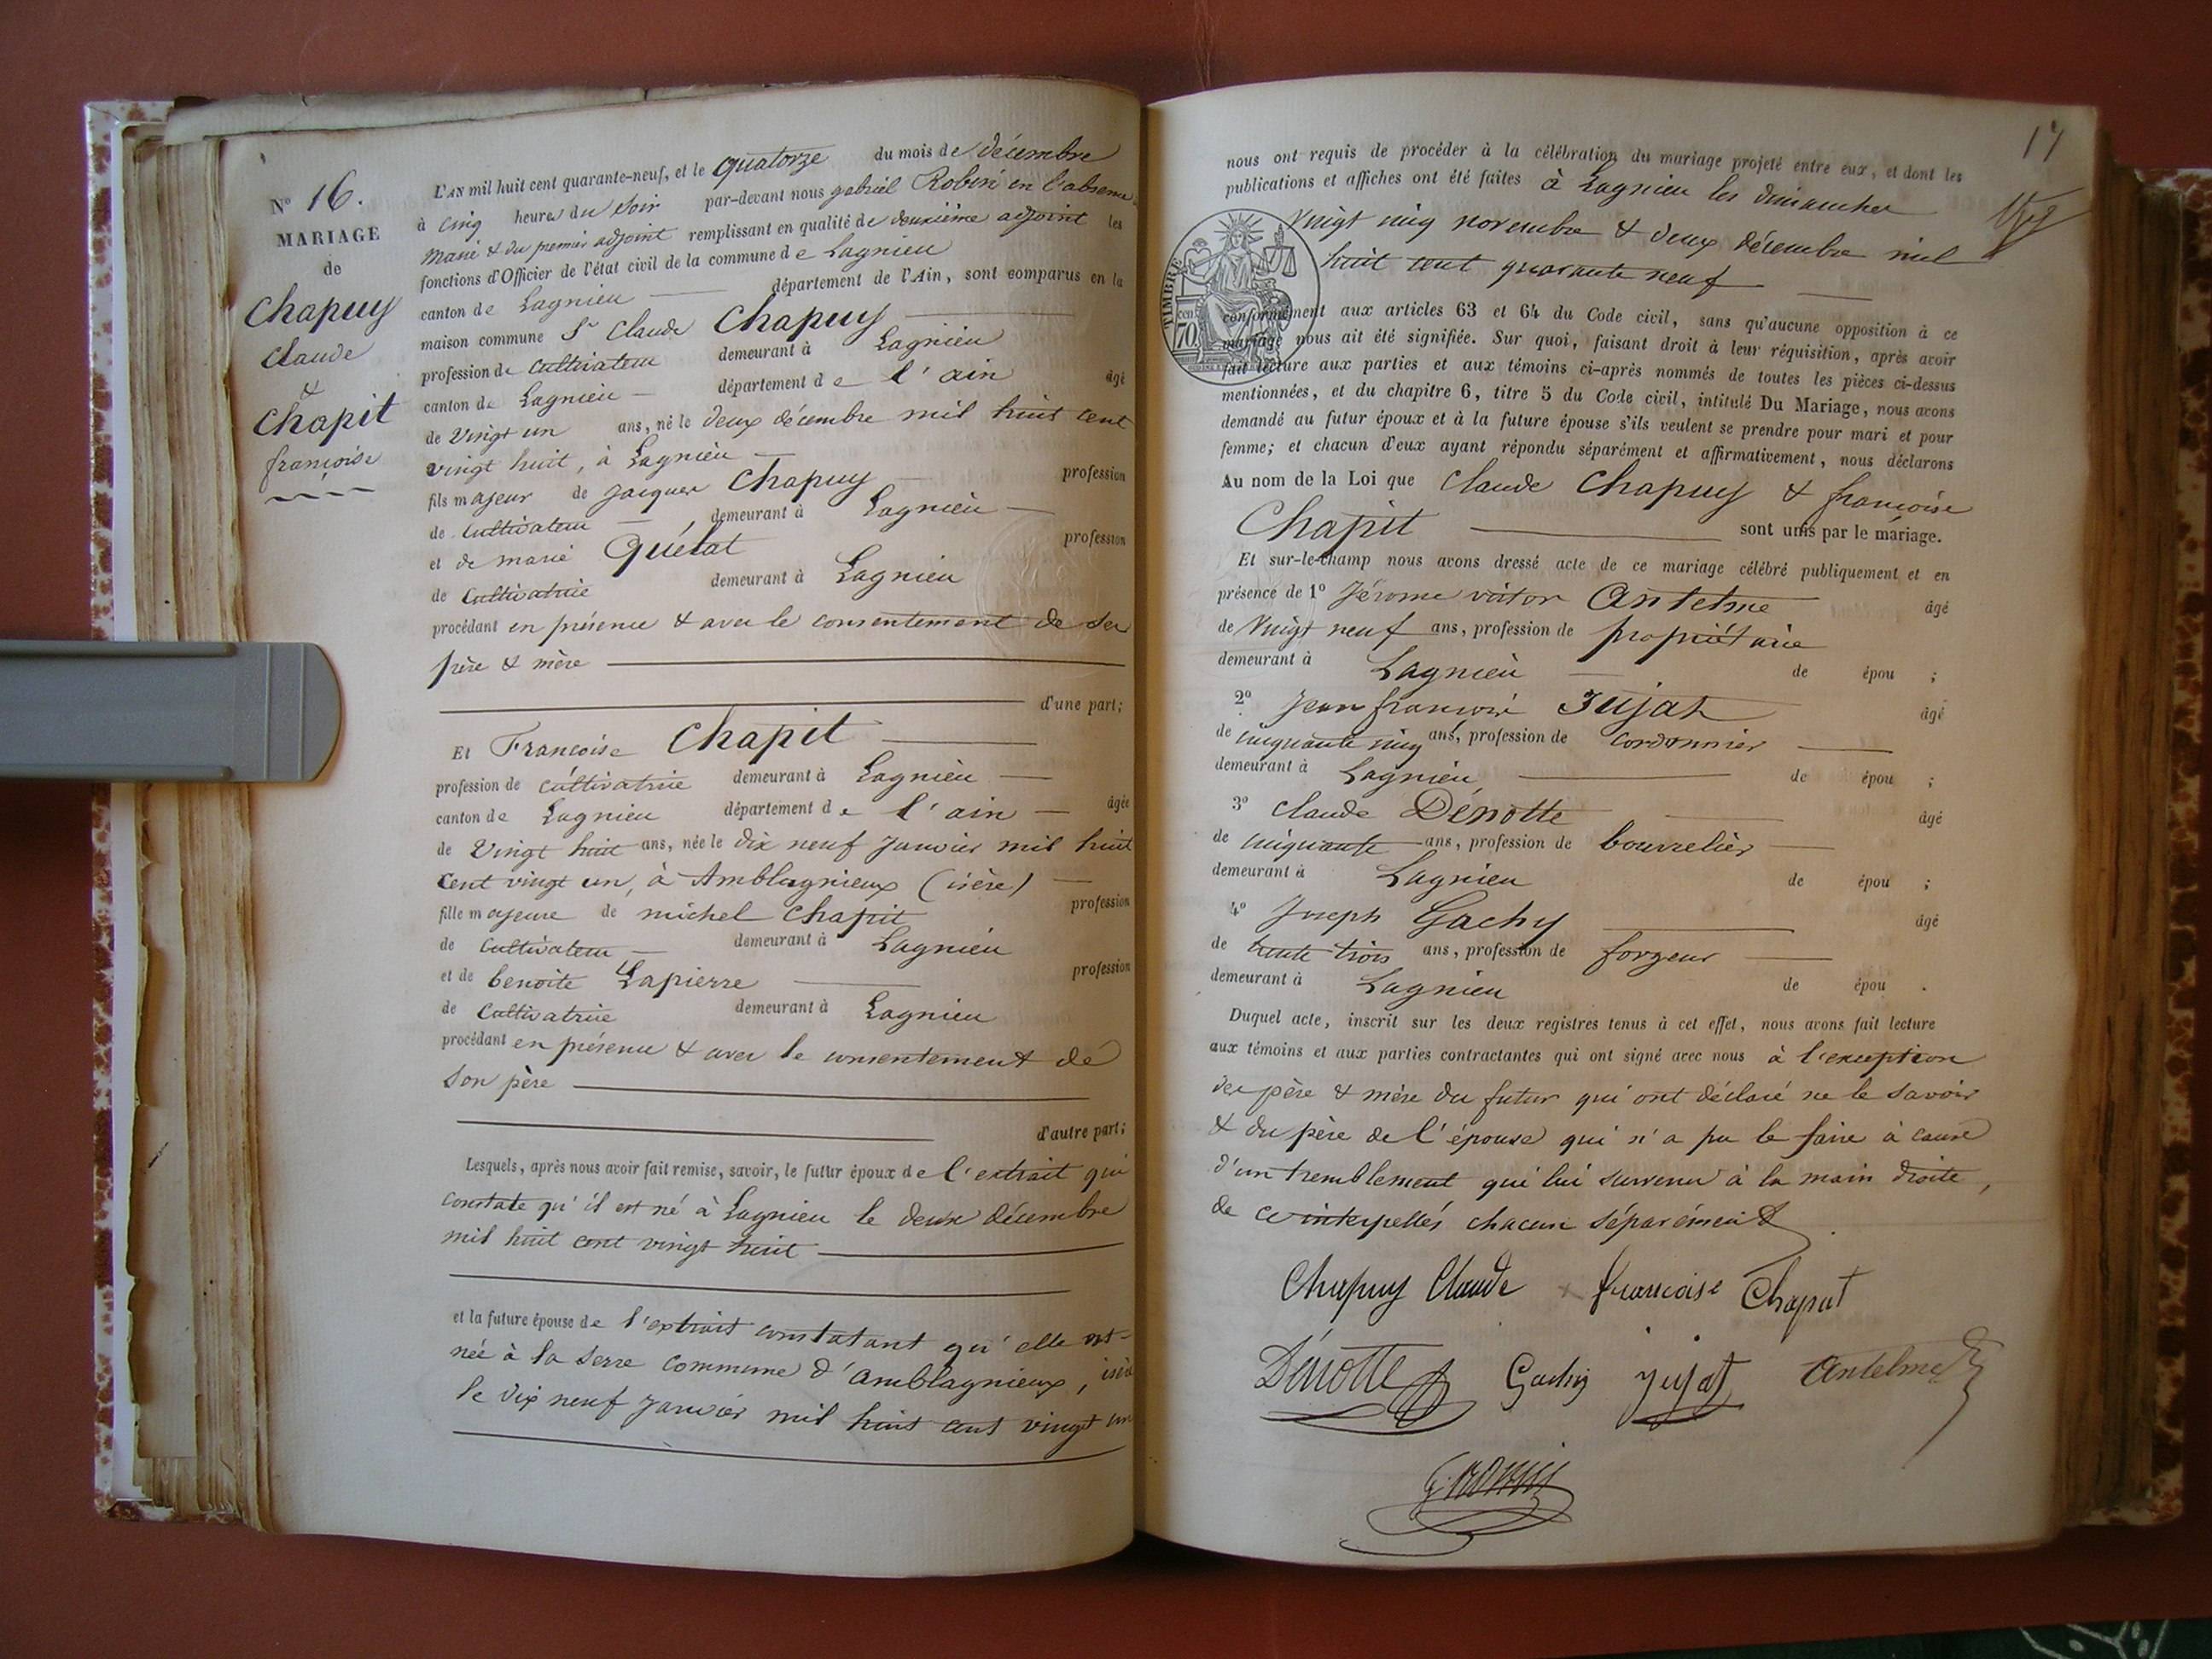 N° 16.
MARIAGE
de
Chapuy
Claude
&
Chapit
françoise
L'AN mil huit cent quarante-neuf, et le quatorze du mois de décembre
à cinq heures du soir par-devant nous gabriel Robin en l'absence
maire & du premier adjoint remplissant en qualité de deuxième adjoint les
fonctions d'Officier de l'état civil de la commune de Lagnieu
canton de Lagnieu département de l'Ain, sont comparus en la
maison commune Sr Claude Chapuy
profession de cultivateur demeurant à Lagnieu
canton de Lagnieu département de l'ain âgé
de vingt un ans, né le deux décembre mil huit cent
vingt huit, à Lagnieu
fils majeur de jacques Chapuy profession
de cultivateur demeurant à Lagnieu
et de marie Quélat profession
de cultivatrice demeurant à Lagnieu
procédant en présence & avec le consentement de ses
père & mère
d'une part;
Et Françoise Chapit
profession de cultivatrice demeurant à Lagnieu
canton de Lagnieu département de l'ain âgée
de vingt huit ans, née le dix neuf janvier mil huit
cent vingt un, à Amblagnieux (isère)
fille majeure de michel Chapit profession
de cultivateur demeurant à Lagnieu
et de benoite Lapierre profession
de cultivatrice demeurant à Lagnieu
procédant en présence & avec le consentement de
son père
d'autre part;
Lesquels, après nous avoir fait remise, savoir, le futur époux de l'extrait qui
constate qu'il est né à Lagnieu le deux décembre
mil huit cent vingt huit
et la future épouse de l'extrait constatant qu'elle est
née à la Serre commune d'amblagnieux, isère
le dix neuf janvier mil huit cent vingt un
17
nous ont requis de procéder à la célébration du mariage projeté entre eux, et dont les
publications et affiches ont été faites à Lagnieu les dimanches
vingt cinq novembre & deux décembre mil
huit cent quarante neuf
TIMBRE
cen
70
conformément aux articles 63 et 64 du Code civil, sans qu'aucune opposition à ce
mariage nous ait été signifiée. Sur quoi, faisant droit à leur réquisition, après avoir
fait lecture aux parties et aux témoins ci-après nommés de toutes les pièces ci-dessus
mentionnées, et du chapitre 6, titre 5 du Code civil, intitulé Du Mariage, nous avons
demandé au futur époux et à la future épouse s'ils veulent se prendre pour mari et pour
femme; et chacun d'eux ayant répondu séparément et affirmativement, nous déclarons
Au nom de la Loi que Claude Chapuy & françoise
Chapit sont unis par le mariage.
Et sur-le-champ nous avons dressé acte de ce mariage célébré publiquement et en
présence de 1° Jérome victor Antelme âgé
de vingt neuf ans, profession de propriétaire
demeurant à Lagnieu de épou ;
2° Jean françois Jujat âgé
de cinquante cinq ans, profession de cordonnier
demeurant à Lagnieu de épou ;
3° Claude Dénotte âgé
de cinquante ans, profession de bourrelier
demeurant à Lagnieu de épou ;
4° Joseph Gachy âgé
de trente trois ans, profession de forgeur
demeurant à Lagnieu de épou .
Duquel acte, inscrit sur les deux registres tenus à cet effet, nous avons fait lecture
aux témoins et aux parties contractantes qui ont signé avec nous à l'exception
des père & mère du futur qui ont déclaré ne le savoir
& du père de l'épouse qui n'a pu le faire à cause
d'un tremblement qui lui survenu à la main droite,
de ce interpellés chacun séparément
Chapuy Claude françoise Chaput
Dénotte Gachy Jujat Antelme
G. Robin